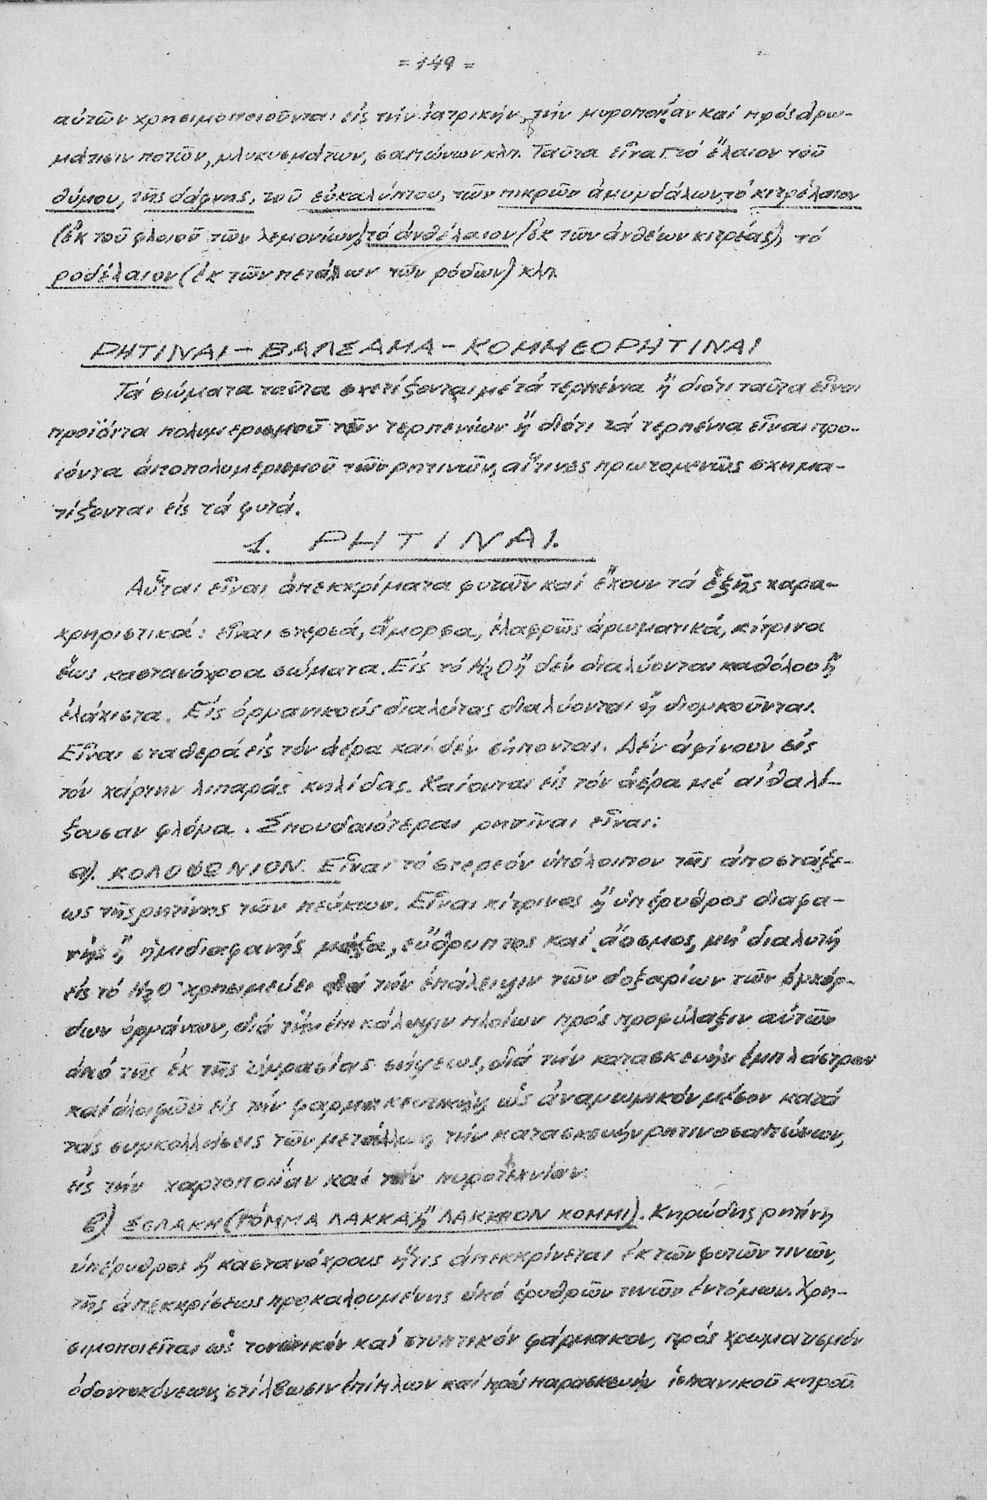 = 149 =
αὐτῶν χρησιμοποιοῦνται εἰς τήν ἰατρικήν, τήν μυροποιΐαν καί πρός ἀρω-
μάτισιν ποτῶν, γλυκυσμάτων, σαπώνων κλπ. Ταῦτα εἶναι τό ἔλαιον τοῦ
θύμου, τῆς δάφνης, τοῦ εὐκαλύπτου, τῶν πικρῶν ἀμυγδάλων, τό κιτρέλαιον
(ἐκ τοῦ φλοιοῦ τῶν λεμονίων), τό ἀνθέλαιον (ἐκ τῶν ἀνθέων κιτρέας), τό
ροδέλαιον (ἐκ τῶν πετάλων τῶν ρόδων) κλπ.
ΡΗΤΙΝΑΙ – ΒΑΛΣΑΜΑ – ΚΟΜΜΕΟΡΗΤΙΝΑΙ
Τά σώματα ταῦτα σχετίζονται μέ τά τερπένια ἤ διότι ταῦτα εἶναι
προϊόντα πολυμερισμοῦ τῶν τερπενίων ἤ διότι τά τερπένια εἶναι προ-
ιόντα ἀποπολυμερισμοῦ τῶν ρητινῶν, αἵτινες πρωτογενῶς σχημα-
τίζονται εἰς τά φυτά.
1. ΡΗΤΙΝΑΙ.
Αὗται εἶναι ἀπεκκρίματα φυτῶν καί ἔχουν τά ἑξῆς χαρα-
χρηριστικά: εἶναι στερεά, ἄμορφα, ἐλαφρῶς ἀρωματικά, κίτρινα
ἕως καστανόχροα σώματα. Εἰς τό H₂O ἤ δέν διαλύονται καθόλου ἤ
ἐλάχιστα. Εἰς ὀργανικούς διαλύτας διαλύονται ἤ διογκοῦνται.
Εἶναι σταθερά εἰς τόν ἀέρα καί δέν σήπονται. Δέν ἀφίνουν εἰς
τόν χάρτην λιπαράς κηλίδας. Καίονται εἰς τόν ἀέρα μέ αἰθαλί-
ζουσαν φλόγα. Σπουδαιότεραι ρητῖναι εἶναι:
α). ΚΟΛΟΦΩΝΙΟΝ. Εἶναι τό στερεόν ὑπόλοιπον τῆς ἀποστάξε-
ως τῆς ρητίνης τῶν πεύκων. Εἶναι κίτρινος ἤ ὑπέρυθρος διαφα-
νής ἤ ἡμιδιαφανής μᾶζα, εὔθρυπτος καί ἄοσμος, μή διαλυτή
εἰς τό H₂O χρησιμεύει διά τήν ἐπάλειψιν τῶν δοξαρίων τῶν ἐγχόρ-
δων ὀργάνων, διά τήν ἐπικάλυψιν πλοίων πρός προφύλαξιν αὐτῶν
ἀπό τῆς ἐκ τῆς ὑγρασίας σήψεως, διά τήν κατασκευήν ἐμπλάστρων
καί ἀλοιφῶν εἰς τήν φαρμακευτικήν, ὡς ἀναγωγικόν μέσον κατά
τάς συγκολλήσεις τῶν μετάλλων, τήν κατασκευήν ρητινοσαπώνων,
εἰς τήν χαρτοποιΐαν καί τήν πυροτεχνίαν.
β) ΣΕΛΑΚΗ (ΓΟΜΜΑ ΛΑΚΚΑ ἤ ΛΑΚΚΙΟΝ ΚΟΜΜΙ). Κηρώδης ρητίνη
ὑπέρυθρος ἤ καστανόχρους ἥτις ἀπεκκρίνεται ἐκ τῶν φυτῶν τινῶν,
τῆς ἀπεκκρίσεως προκαλουμένης ὑπό ἐρυθρῶν τινῶν ἐντόμων. Χρη-
σιμοποιεῖται ὡς τονωτικόν καί στυπτικόν φάρμακον, πρός χρωματισμόν
ὀδοντοκόνεως, στίλβωσιν ἐπίπλων καί πρός παρασκευήν ἰσπανικοῦ κηροῦ